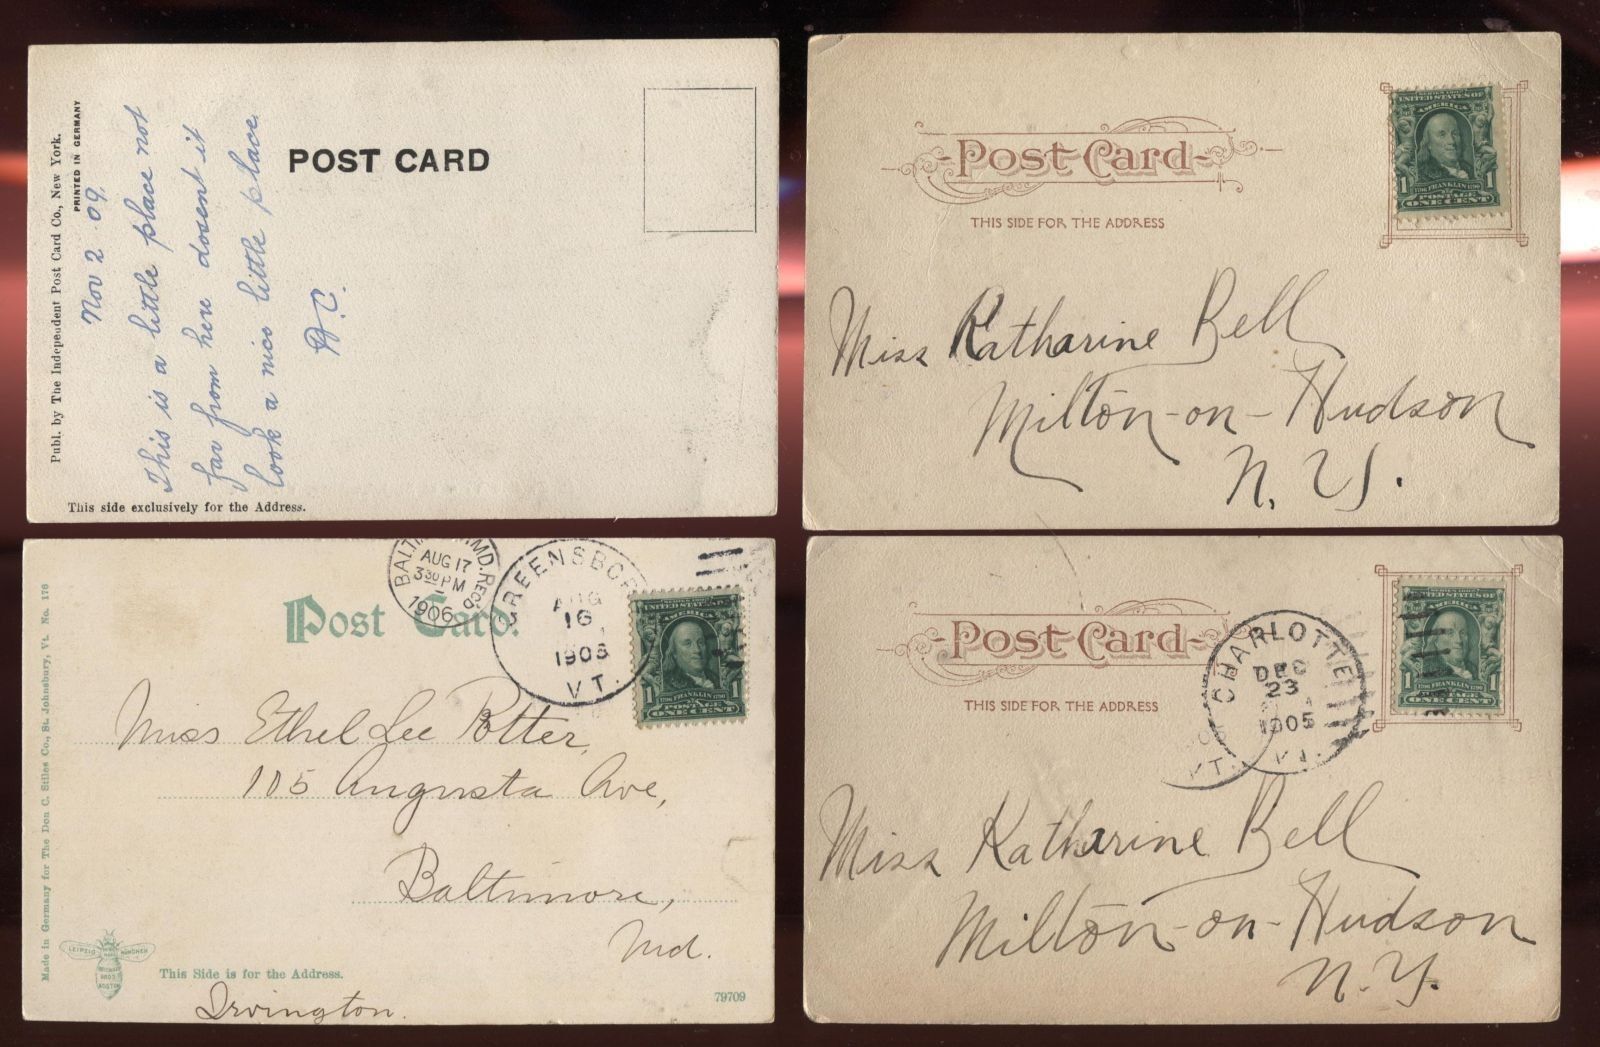 Publ. by The Independent Post Card Co., New York.
PRINTED IN GERMANY
Nov 2 09
This is a little place not
far from here dosent it
look a nice little place
A.C.
POST CARD
This side exclusively for the Address.
Post Card
THIS SIDE FOR THE ADDRESS
SERIES 1902
UNITED STATES OF
AMERICA
1706 FRANKLIN 1790
1 POSTAGE 1
ONE CENT
Miss Katharine Bell
Milton-on-Hudson
N. Y.
Made in Germany for The Don C. Stiles Co., St. Johnsbury, Vt. No. 176
Post Card.
MD. REC'D.
AUG 17
3 30 PM
1906
AUG
16
1906
VT.
UNITED STATES OF
AMERICA
1706 FRANKLIN 1790
1 POSTAGE 1
ONE CENT
Miss Ethel Lee Potter,
105 Augusta Ave,
Baltimore,
Md.
LEIPZIG MÜNCHEN
BOSTON
This Side is for the Address.
79709
Irvington.
Post Card
THIS SIDE FOR THE ADDRESS
CHARLOTTE
DEC
23
1905
VT.
VT.
UNITED STATES OF
AMERICA
1 1
ONE CENT
Miss Katharine Bell
Milton-on-Hudson
N.Y.